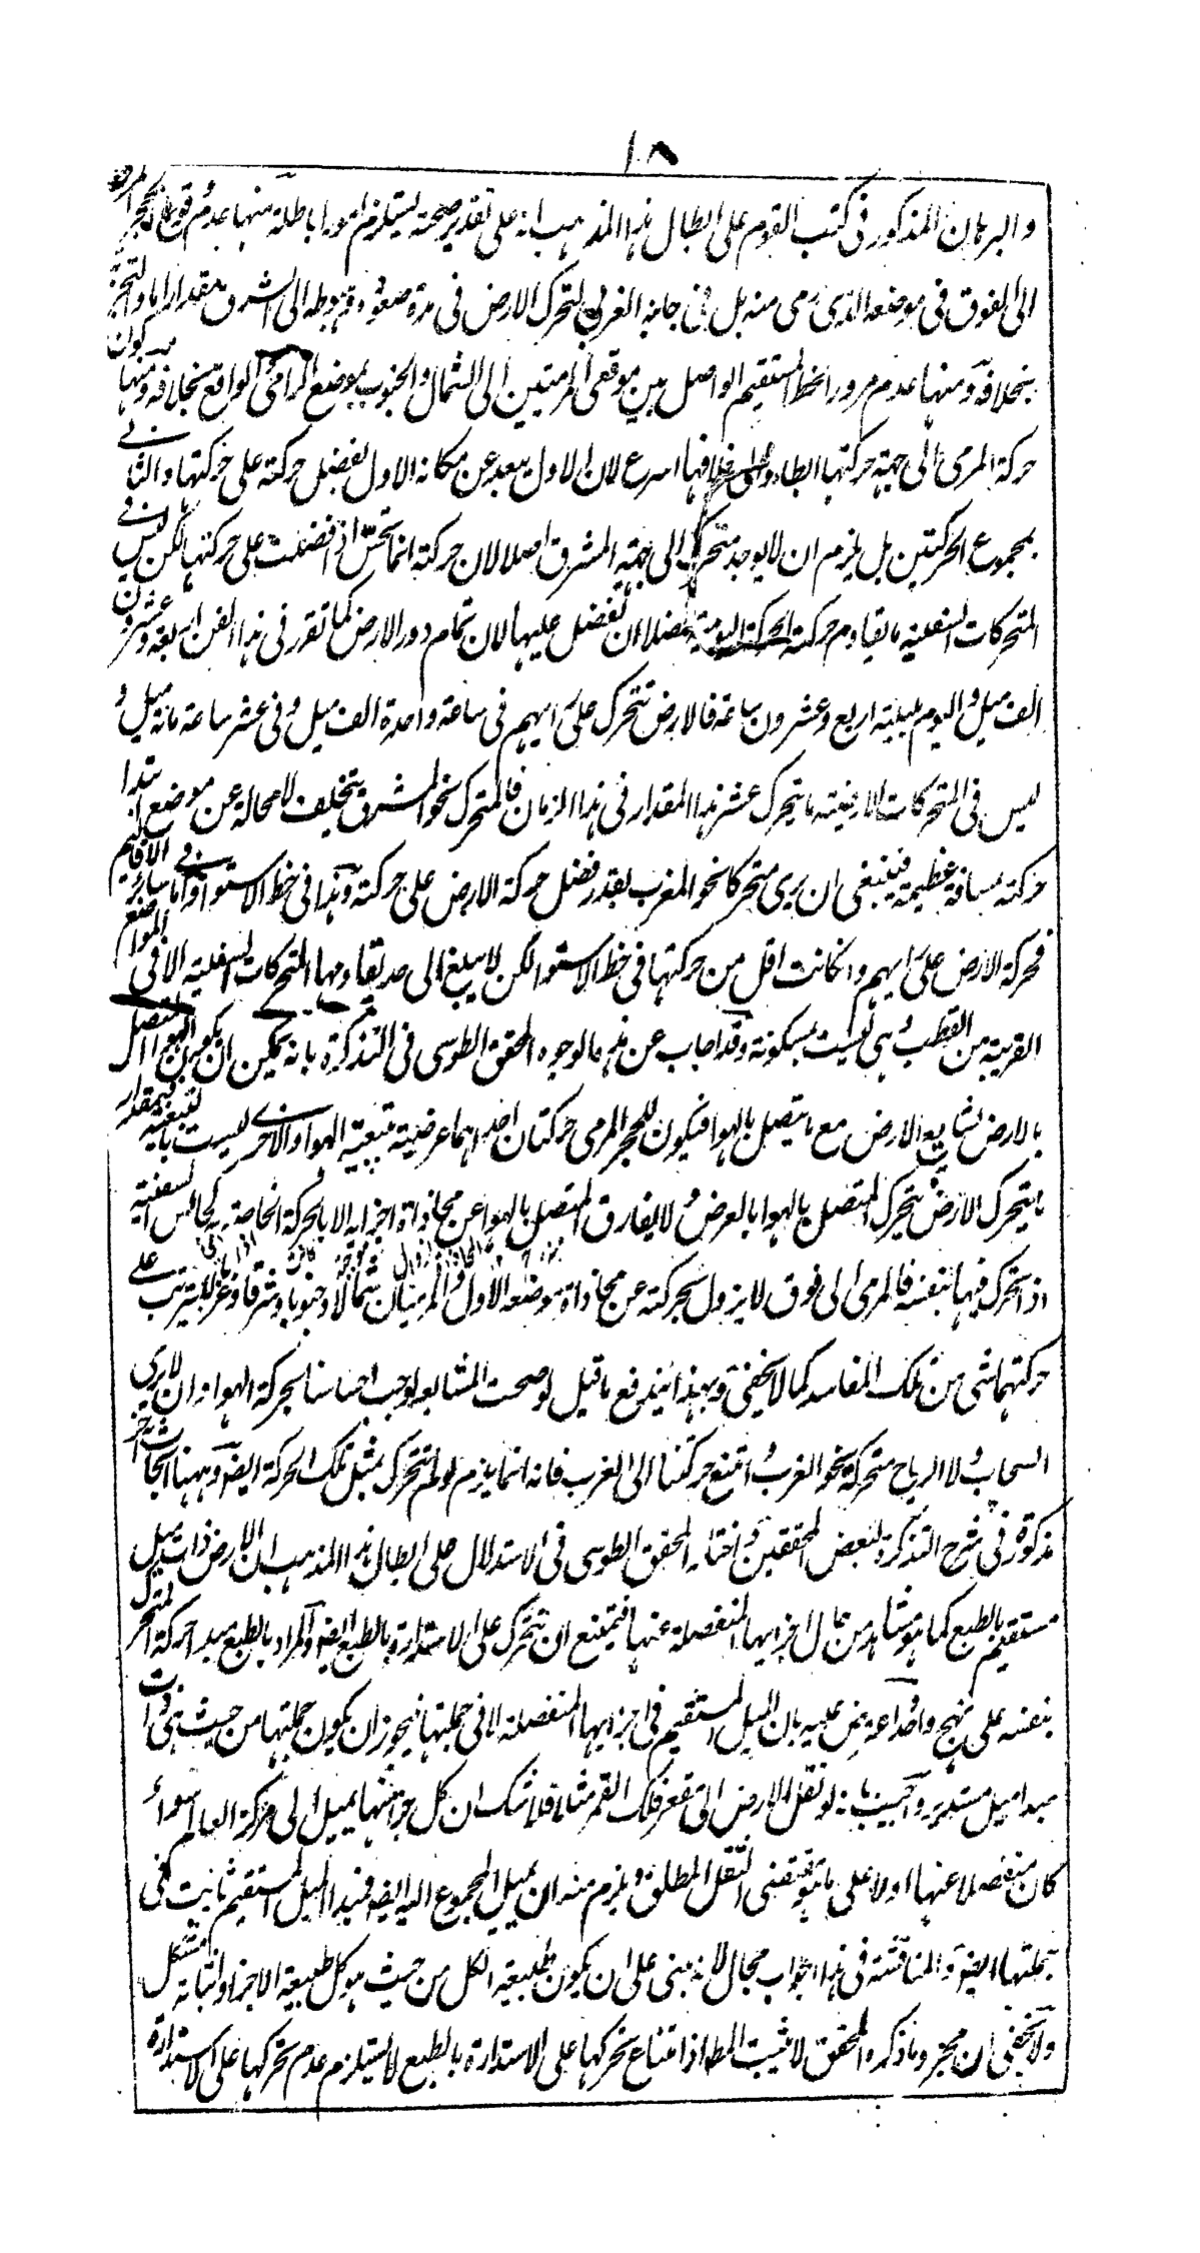 ١٨
والبرهان المذكور فى كتب القوم على ابطال هذا المذهب انه على تقدير صحته يستلزم امورا باطلة منها عدم وقوع الحجر المرمى
الى الفوق فى موضعه الذى رمى منه بل فى جانبه الغربى لتحرك الارض فى مدة صعوده وهبوطه الى الشرق مقدارا ما والتجربة
بخلافه ومنها عدم مرور الخط المستقيم الواصل بين موقعى المرميين الى الشمال والجنوب بموضع الرامى والواقع بخلافه ومنها كون
حركة المرمى الى جهة حركتها ابطاء والى خلافها اسرع لان الاول يبعد عن مكانه الاول بفضل حركته على حركتها والثانى
بمجموع الحركتين بل يلزم ان لا يوجد متحرك الى جهة المشرق اصلا لان حركته انما تحس اذا فضلت على حركتها لكن ليس فى
المتحركات السفلية ما يقاوم حركته الحركة اليومية فضلا ان تفضل عليها لان تمام دور الارض كما تقرر فى هذا الفن اربعة وعشرون
الف ميل واليوم بليلته اربع وعشرون ساعة فالارض تتحرك على رايهم فى ساعة واحدة الف ميل وفى عشر ساعة مائة ميل و
ليس فى المتحركات الارضية ما يتحرك عشر هذا المقدار فى هذا الزمان فالمتحرك نحو المشرق يتخلف لا محالة عن موضع ابتدا
حركته بمسافة عظيمة فينبغى ان يرى متحركا نحو المغرب بقدر فضل حركة الارض على حركته وهذا فى خط الاستوا واما فى سائر الاقاليم
فحركة الارض على رايهم وان كانت اقل من حركتها فى خط الاستوا لكن لا يبلغ الى حد يقاومها المتحركات السفلية الا فى المواضع
القريبة من القطب وهى ليست بمسكونة وقد اجاب عن هذه الوجوه المحقق الطوسى فى التذكرة بانه يمكن ان يكون الهوا المتصل
بالارض يشايع الارض مع ما يتصل بالهوا فيكون للحجر المرمى حركتان احدهما عرضية بتبعية الهوا والاخرى ليست بالتبعية فبمقدار
ما يتحرك الارض يتحرك المتصل بالهوا بالعرض ولا يفارق المتصل بالهوا عن محاذاة اجزايه الا بالحركة الخاصة به كجالس السفينة
اذا تحرك فيها بنفسه فالمرمى الى فوق لا يزول بحركته عن محاذاة موضعه الاول والمرميان شمالا وجنوبا وشرقا وغربا لا يترتب على
حركتهما شى من تلك المفاسد كما لا يخفى وبهذا يندفع ما قيل لو صحت المشايعة لوجب احساسنا بحركة الهوا وان لا يرى
السحاب ولا الرياح متحركة نحو الغرب وامتنع حركتنا الى الغرب فانه انما يلزم لو لم نتحرك بمثل تلك الحركة ايضا وههنا ابحاث اخر
مذكورة فى شرح التذكرة لبعض المحققين واختار المحقق الطوسى فى الاستدلال على ابطال هذا المذهب ان الارض ذات ميل
مستقيم بالطبع كما هو مشاهد من حال اجزايها المنفصلة عنها فيمتنع ان تتحرك على الاستدارة بالطبع ايضا والمراد بالطبع مبدا حركة المتحرك
بنفسه على نهج واحد واعترض عليه بان الميل المستقيم فى اجزايها المنفصلة لا فى جملتها فيجوز ان يكون جملتها من حيث هى ذات
مبدا ميل مستدير واجيب بانه لو نقل الارض الى مقعر فلك القمر مثلا فلا شك ان كل جزء منها يميل الى مركز العالم سواء
كان منفصلا عنها او لا على ما يقتضى الثقل المطلق ويلزم منه ان يميل المجموع اليه ايضا فمبدا الميل المستقيم ثابت فى
جملتها ايضا والمناقشة فى هذا الجواب مجال لانه مبنى على ان يكون طبيعة الكل من حيث هو كل طبيعة الاجزاء واثباته مشكل
ولا يخفى ان مجرد ما ذكره المحقق لا يثبت المط اذ امتناع تحركها على الاستدارة بالطبع لا يستلزم عدم تحركها على الاستدارة